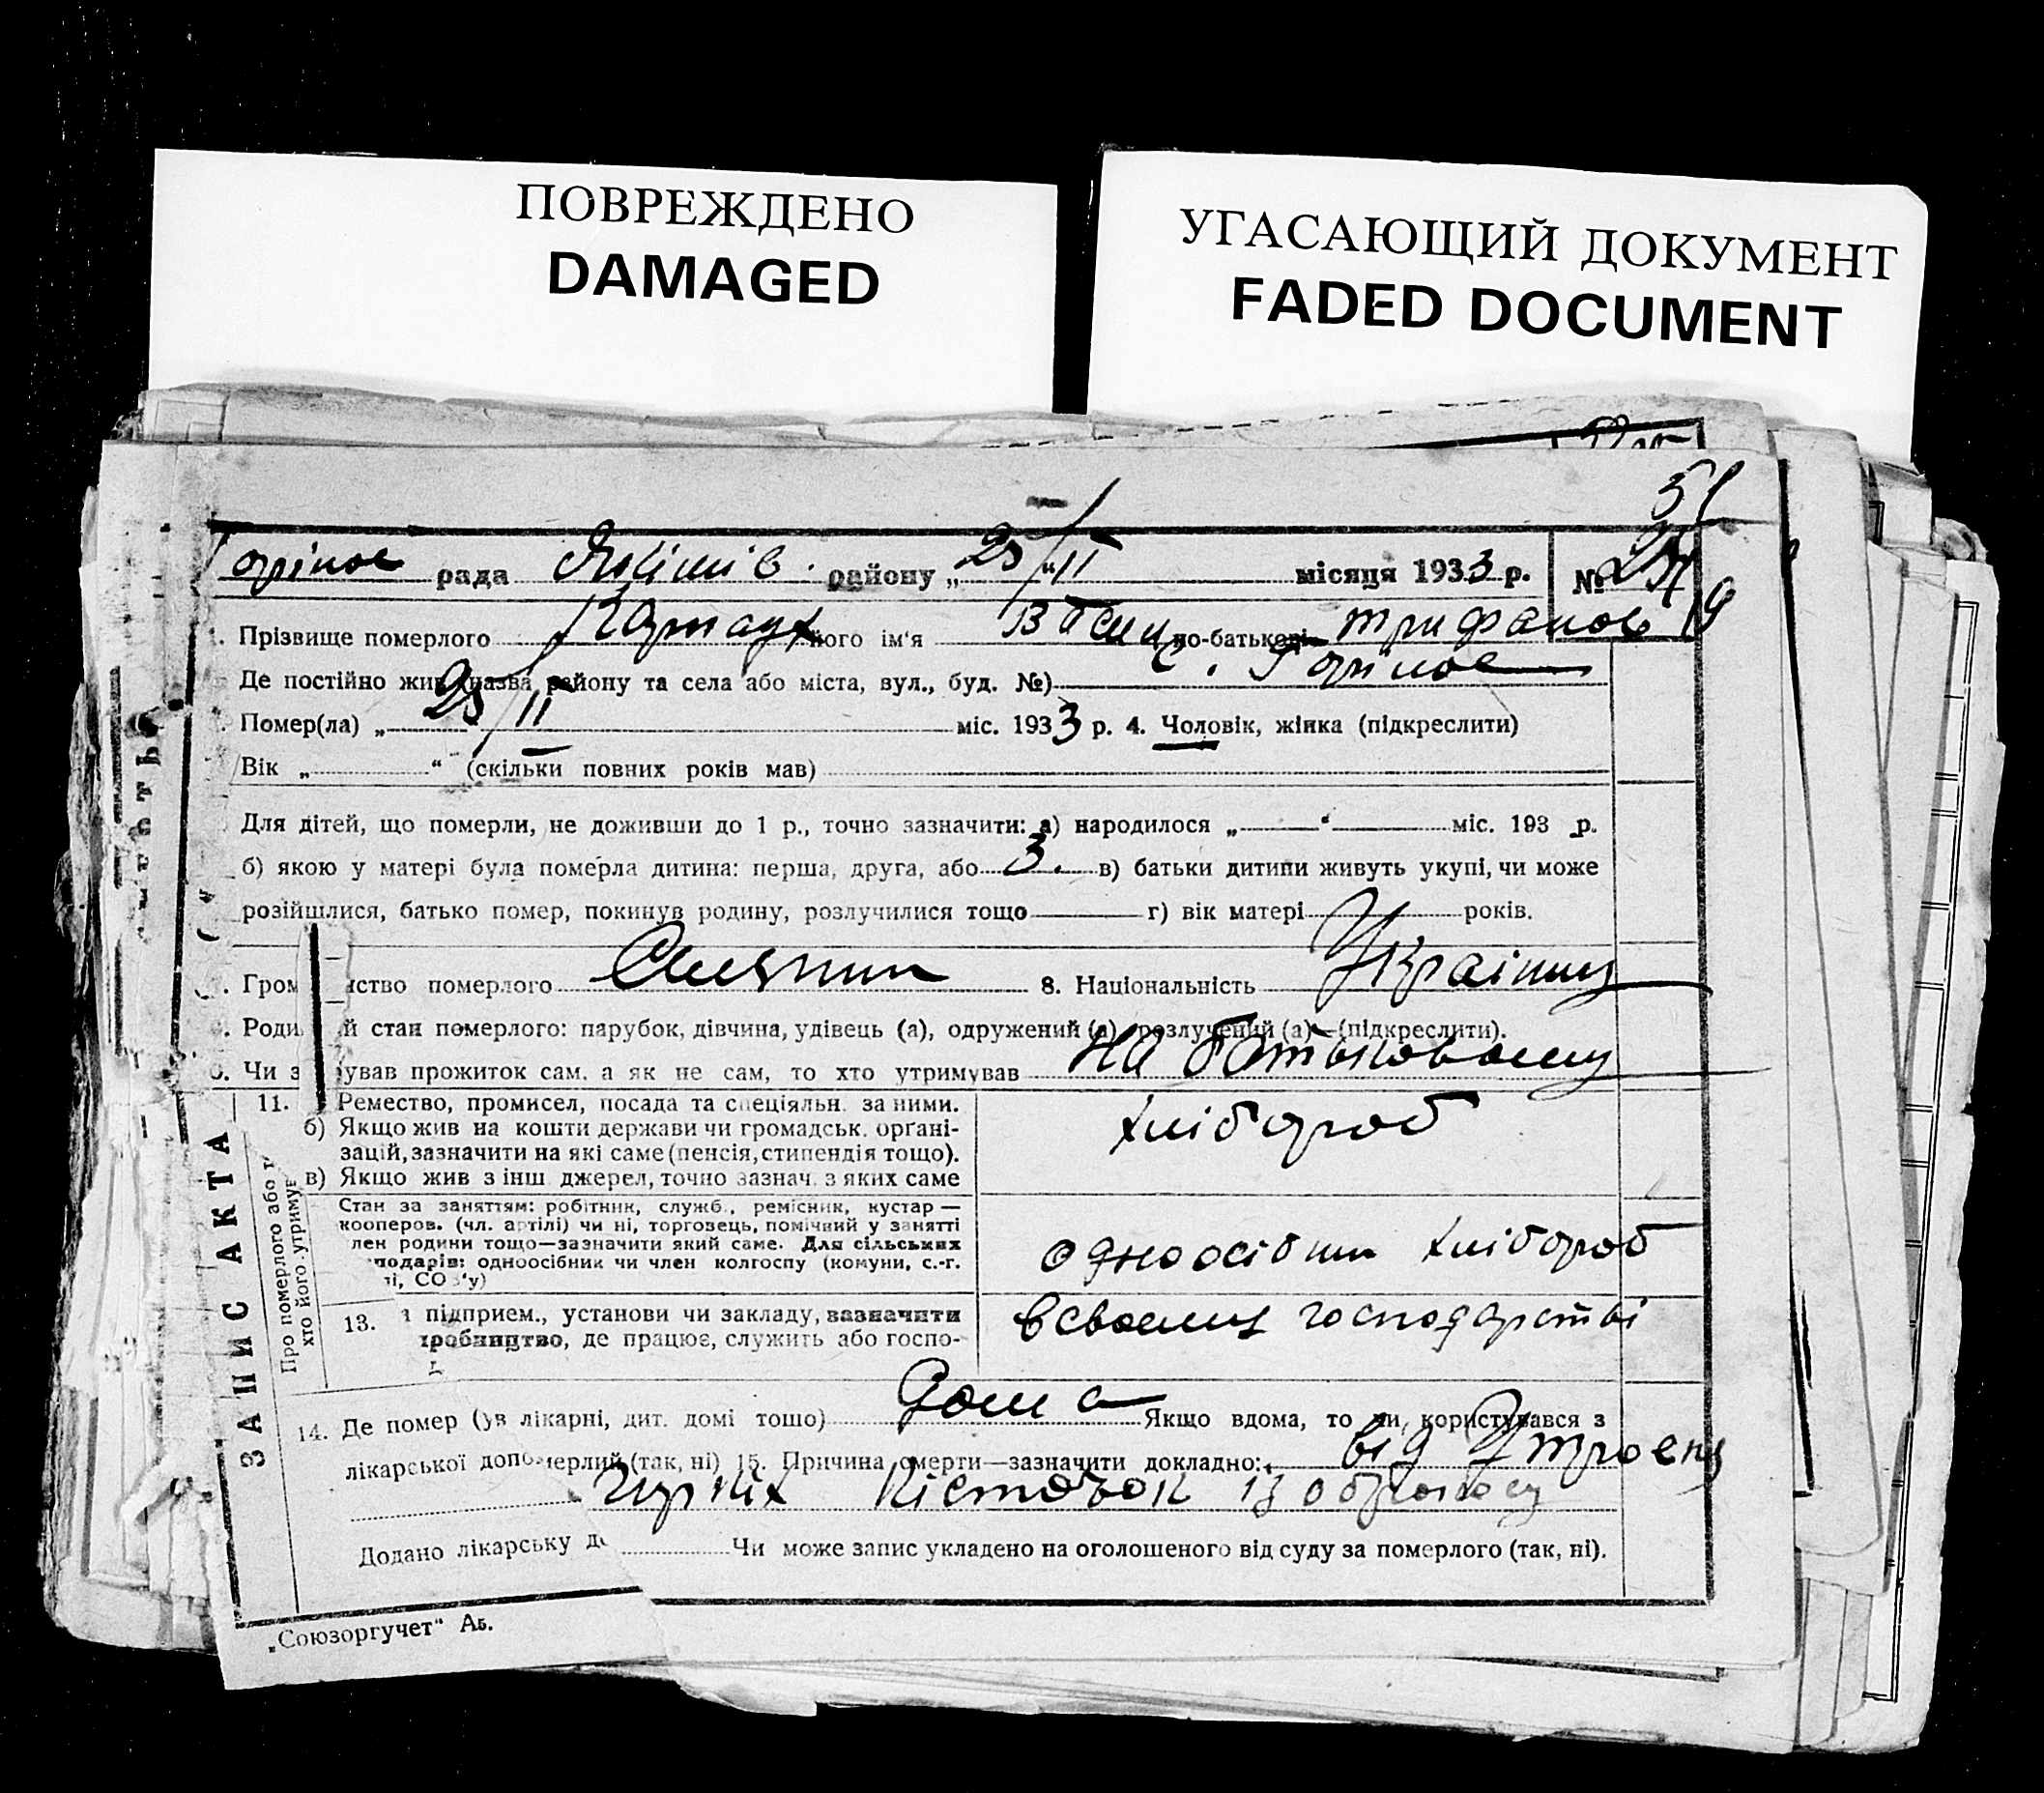 ПОВРЕЖДЕНО
DAMAGED
УГАСАЮЩИЙ ДОКУМЕНТ
FADED DOCUMENT
51
Горіноє рада Якимів. району „25/II“ місяця 1933 р. №
Прізвище померлого Карнаух його ім‘я Василь по-батькові Трифанов
Де постійно жив (назва району та села або міста, вул., буд. №) Горіноє
Помер(ла) „25/II міс. 1933 р. 4. Чоловік, жінка (підкреслити)
Вік „ “ (скільки повних років мав)
Для дітей, що померли, не доживши до 1 р., точно зазначити: а) народилося „ “ міс. 193 р.
б) якою у матері була померла дитина: перша, друга, або 3. в) батьки дитини живуть укупі, чи може
розійшлися, батько помер, покинув родину, розлучилися тощо г) вік матері років.
Гром ство померлого 8. Національність Українец
Роди й стан померлого: парубок, дівчина, удівець (а), одружений (а), розлучений (а)—(підкреслити).
Чи з ував прожиток сам, а як не сам, то хто утримував на батьковому
ЗАПИС АКТА
Про померлого або
хто його утримує
11. Ремество, промисел, посада та спеціяльн. за ними.
б) Якщо жив на кошти держави чи громадськ. органі-
зацій, зазначити на які саме (пенсія, стипендія тощо).
в) Якщо жив з інш джерел, точно зазнач. з яких саме
хлібороб
Стан за заняттям: робітник, служб., ремісник, кустар—
кооперов. (чл. артілі) чи ні, торговець, помічний у занятті
лен родини тощо—зазначити який саме. Для сільських
подарів: одноосібник чи член колгоспу (комуни, с.-г.
і, СОЗ‘у)
одноосібник хлібороб
13. підприєм., установи чи закладу, зазначити
робництво, де працює, служить або госпо-
в своему господарстві
14. Де помер (ув лікарні, дит. домі тощо) дома Якщо вдома, то чи користувався з
лікарської допо мерлий (так, ні) 15. Причина смерти—зазначити докладно: від
кісточок із
Додано лікарську до Чи може запис укладено на оголошеного від суду за померлого (так, ні).
„Союзоргучет“ Аб.